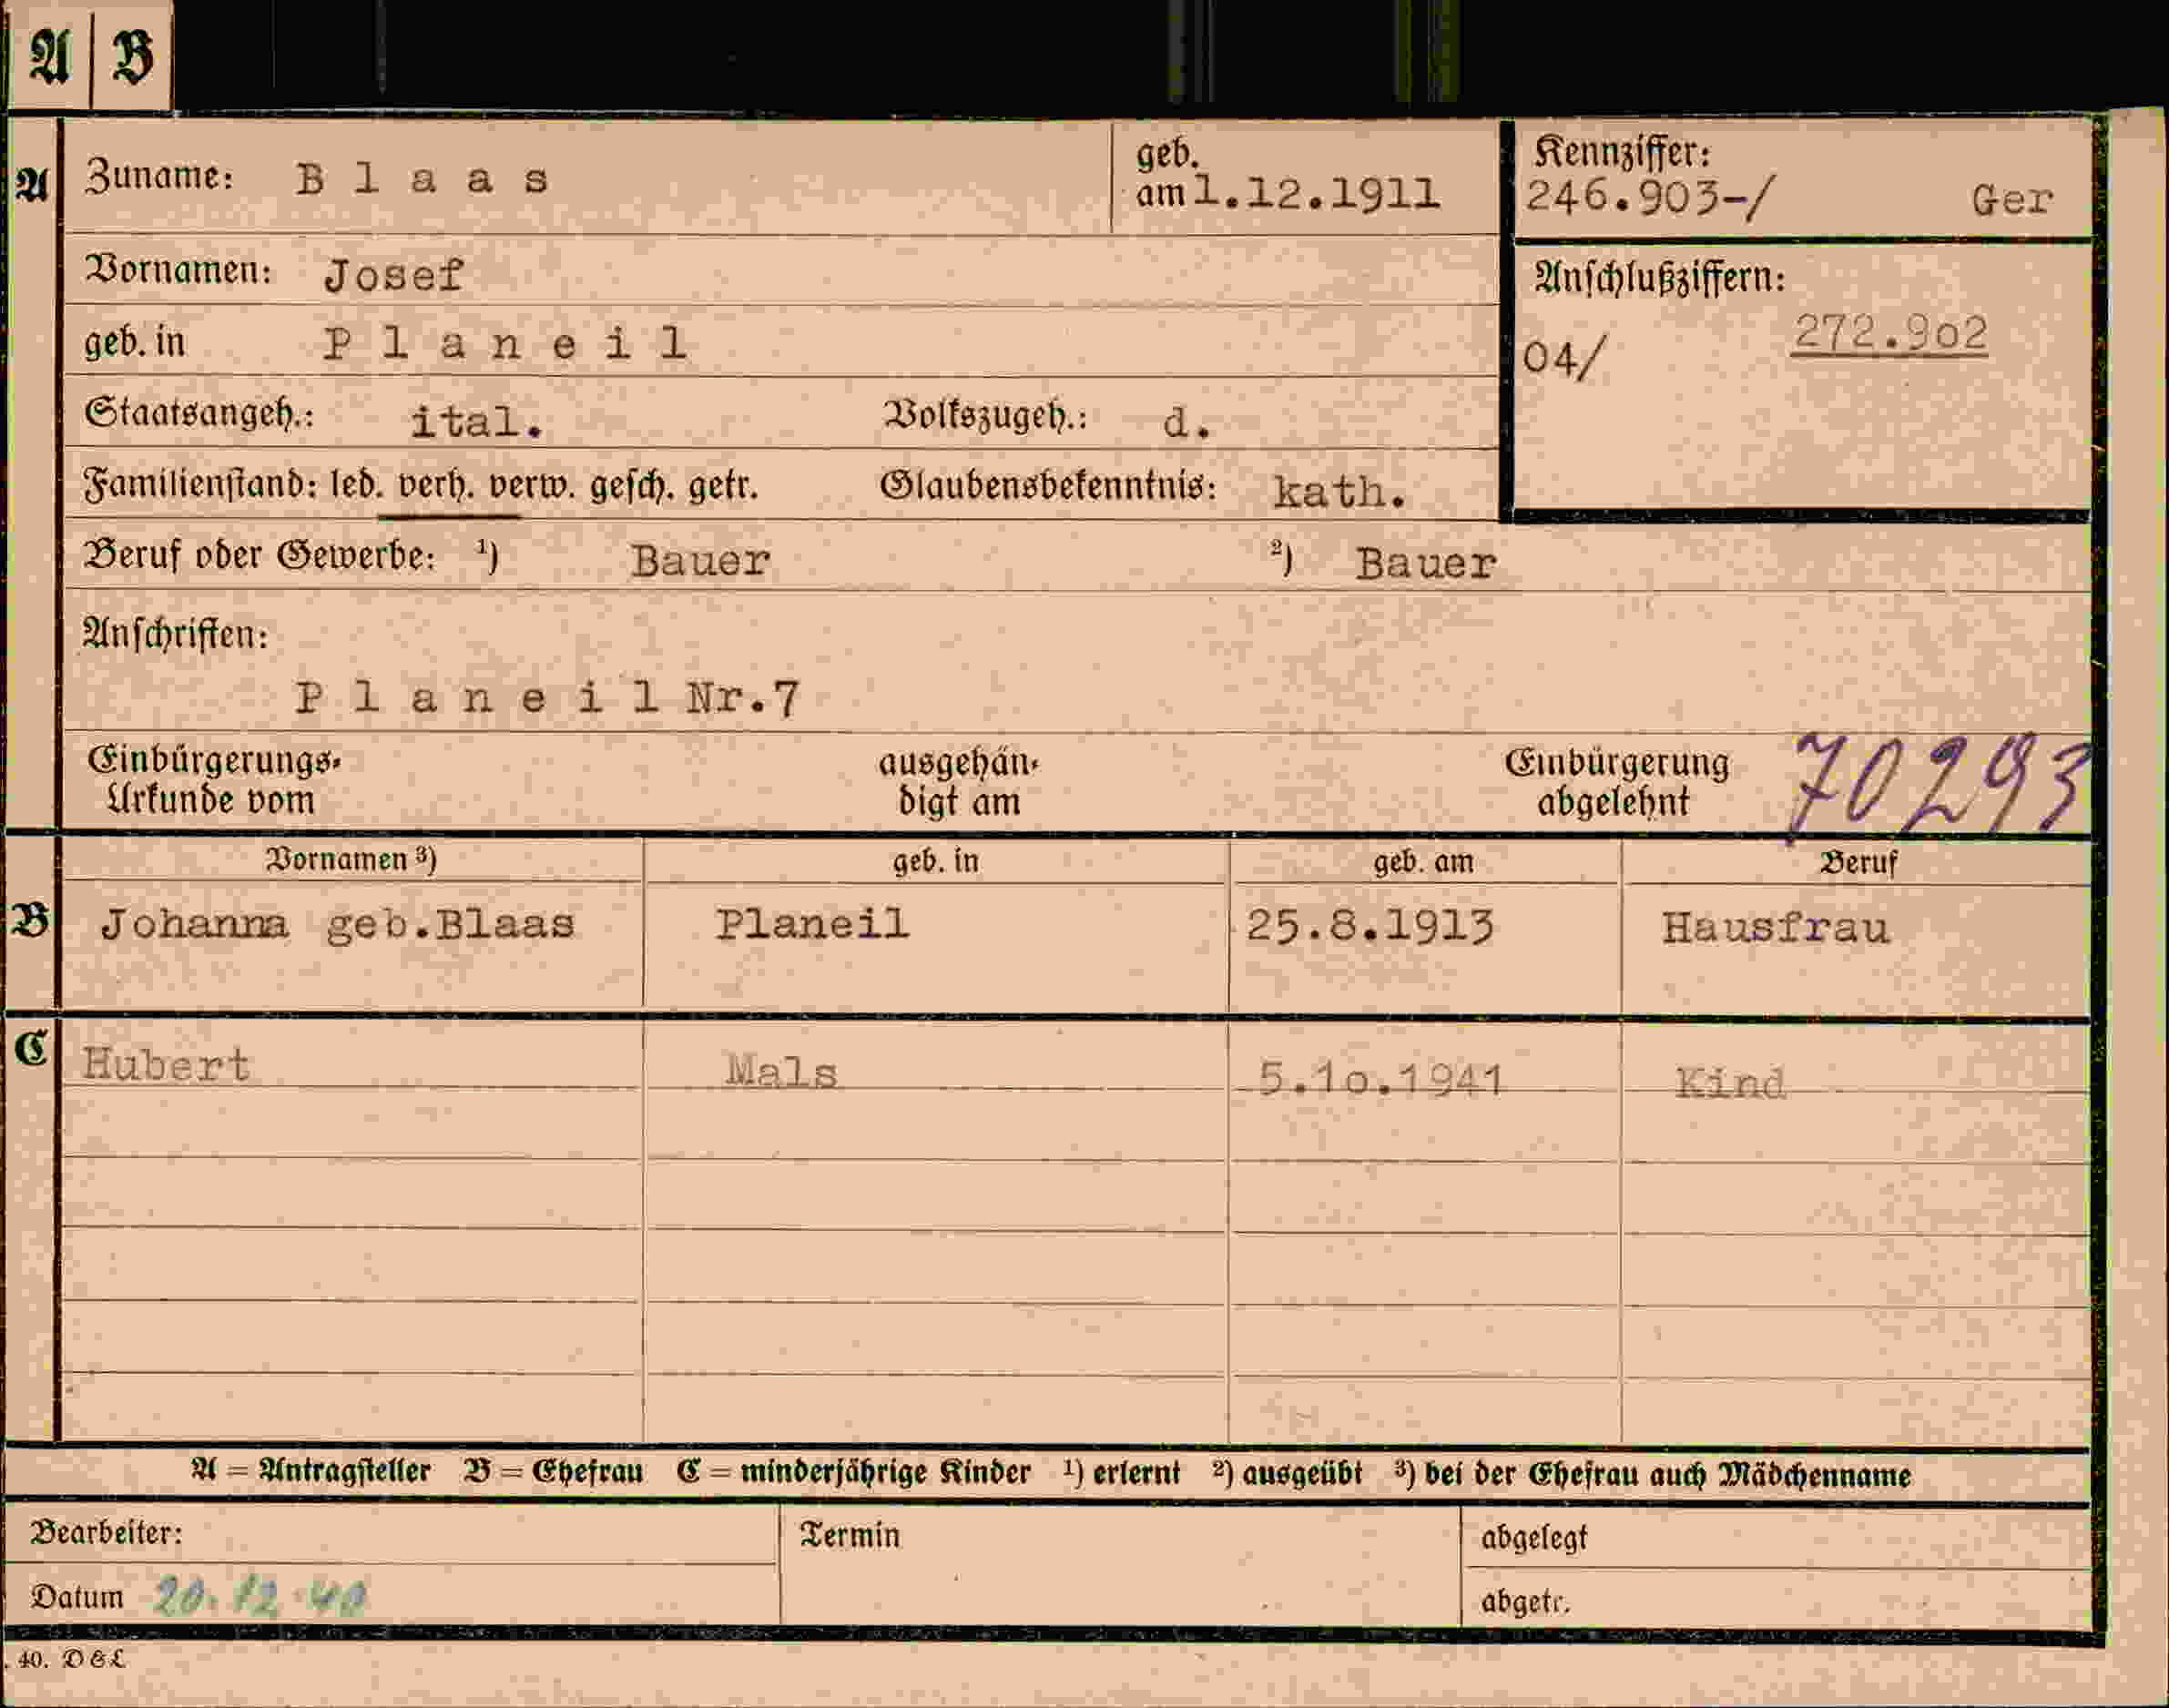 A B
A Zuname: B l a a s geb. am 1.12.1911 Kennziffer: 246.903-/ Ger
Vornamen: Josef
Anschlußziffern:
04/ 272.9o2
geb. in P l a n e i l
Staatsangeh.: ital. Volkszugeh.: d.
Familienstand: led. verh. verw. gesch. getr. Glaubensbekenntnis: kath.
Beruf oder Gewerbe: ¹) Bauer ²) Bauer
Anschriften:
P l a n e i l Nr.7
Einbürgerungs- ausgehän- Einbürgerung 70293
Urkunde vom digt am abgelehnt
Vornamen ³) geb. in geb. am Beruf
B Johanna geb.Blaas Planeil 25.8.1913 Hausfrau
C Hubert Mals 5.1o.1941 Kind
A = Antragsteller B = Ehefrau C = minderjährige Kinder ¹) erlernt ²) ausgeübt ³) bei der Ehefrau auch Mädchenname
Bearbeiter: Termin abgelegt
Datum 20.12.40 abgetr.
. 40. D&L